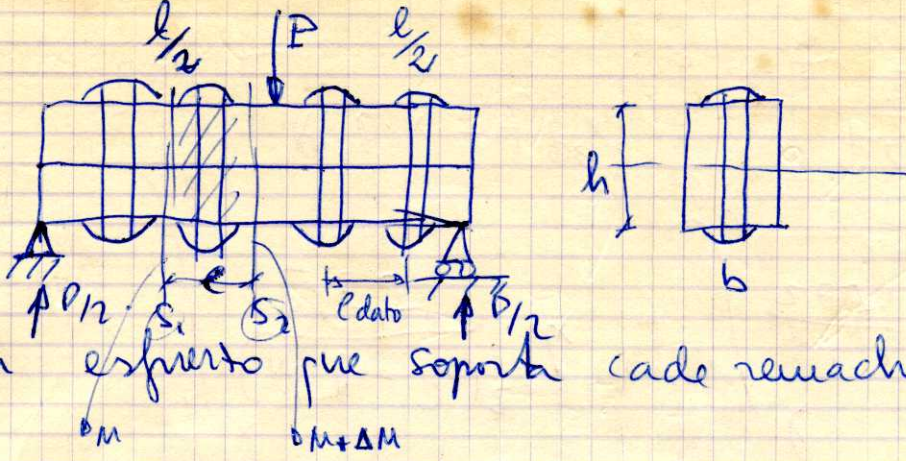 l/2 P l/2
h
b
P/2 S₁ e S₂ e dato P/2
esfuerzo que soporta cade remach
M M+ΔM